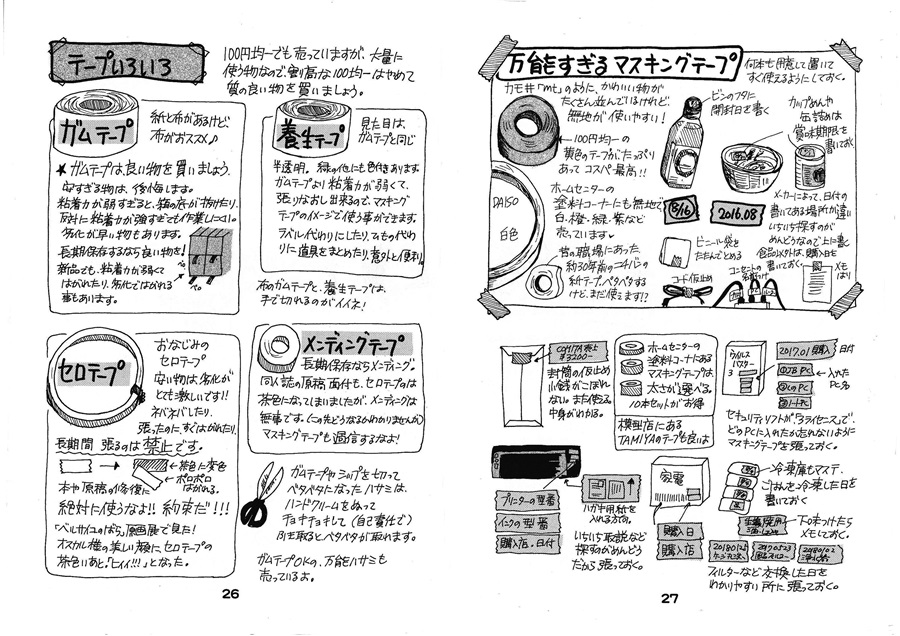 テープいろいろ
100円均一でも売っていますが、大量に
使う物なので割高な100均一はやめて
質の良い物を買いましょう。
ガムテープ
紙と布があるけど、
布がおススメ♪
★ガムテープは良い物を買いましょう
安すぎる物は、後悔します。
粘着力が弱すぎると、箱の底が抜けたり、
逆に粘着力が強すぎても作業しにくい。
劣化が早い物もあります。
長期保存するなら良い物を!
新品でも、粘着力が弱くて
はがれたり、劣化ではがれる
事もあります。
養生テープ
見た目は、
ガムテープと同じ
半透明。緑の他にも色々あります
ガムテープより粘着力が弱くて、
張りなおし出来るので、マスキング
テープのイメージで使う事ができます。
ラベル代わりにしたり、ひもの代わ
りに道具をまとめたり、意外と便利。
布のガムテープと、養生テープは、
手で切れるのがイイネ!
セロテープ
おなじみの
セロテープ
安い物は劣化が
とても激しいです!!
ネバネバしたり、
張ったのに、すぐはがれたり、
長期間 張るのは禁止です。
茶色に変色
ボロボロ
はがれる。
本や原稿の修復に
絶対に使うなよ!! 約束だ!!!
「ベルサイユのばら」原画展で見た!
オスカル様の美しい顔に、セロテープの
茶色いあと。「ヒィィ!!!」となった。
メンディングテープ
長期保存ならメンディング。
同人誌の原稿、面付も、セロテープは
茶色になってしまいましたが、メンディングは
無事です。(この先どうなるかわかりませんが)
マスキングテープも過信するなよ!
ガムテープやシップを切って
ベタベタになったハサミは、
ハンドクリームをぬって
チョキチョキして(自己責任で)
ふき取るとベタベタが取れます。
ガムテープOKの、万能ハサミも
売っているよ。
26
万能すぎるマスキングテープ
何本も用意して置いて
すぐ使えるようにしておく。
カモ井「mt」のように、かわいい物が
たくさん並んでいるけれど、
無地が使いやすい!
100円均一の
黄色のテープがたっぷり
あって コスパ最高!!
DAISO
白色
ホームセンターの
塗料コーナーにも無地で
白・橙・緑・紫など
売っています
昔の職場にあった
約30年前のニチバンの
紙テープ。ベタベタする
けど、まだ使えます!?
ビンのフタに
開封日を書く
カップめんや
缶詰めは
賞味期限を
書いておく
8/16
2016.08
メーカーによって、日付の
書いてある場所が違い
いちいち探すのが
めんどうなので上に書く
食品以外は、購入日を
書いておく。
ビニール袋を
たたんでとめる
コード仮止め
コンセントの
名前つけ
メモ
はり
COMITIA売上
¥3200-
封筒の仮止め
小銭がこぼれ
ない。また使える。
中身がわかる。
ホームセンターの
塗料コーナにある
マスキングテープは
太さが選べる。
10本セットがお得
模型店にある
TAMIYAのテープも良いよ
ウイルス
バスター
3
2017.01 購入
日付
①JB PC
入れた
PC名
セキュリティソフトが「3ライセンス」で
どのPCに入れたか忘れないように
マスキングテープを張っておく。
プリンターの型番
インクの型番
購入店・日付
ハガキ用紙を
入れる方向。
いちいち取説など
探すのがめんどう
だから張っておく。
家電
購入日
購入店
冷凍庫もマステ.
ごはんを冷凍した日を
書いておく
下ろすけたら
メモしておく。
フィルターなど交換した日を
わかりやすい所に張っておく。
27